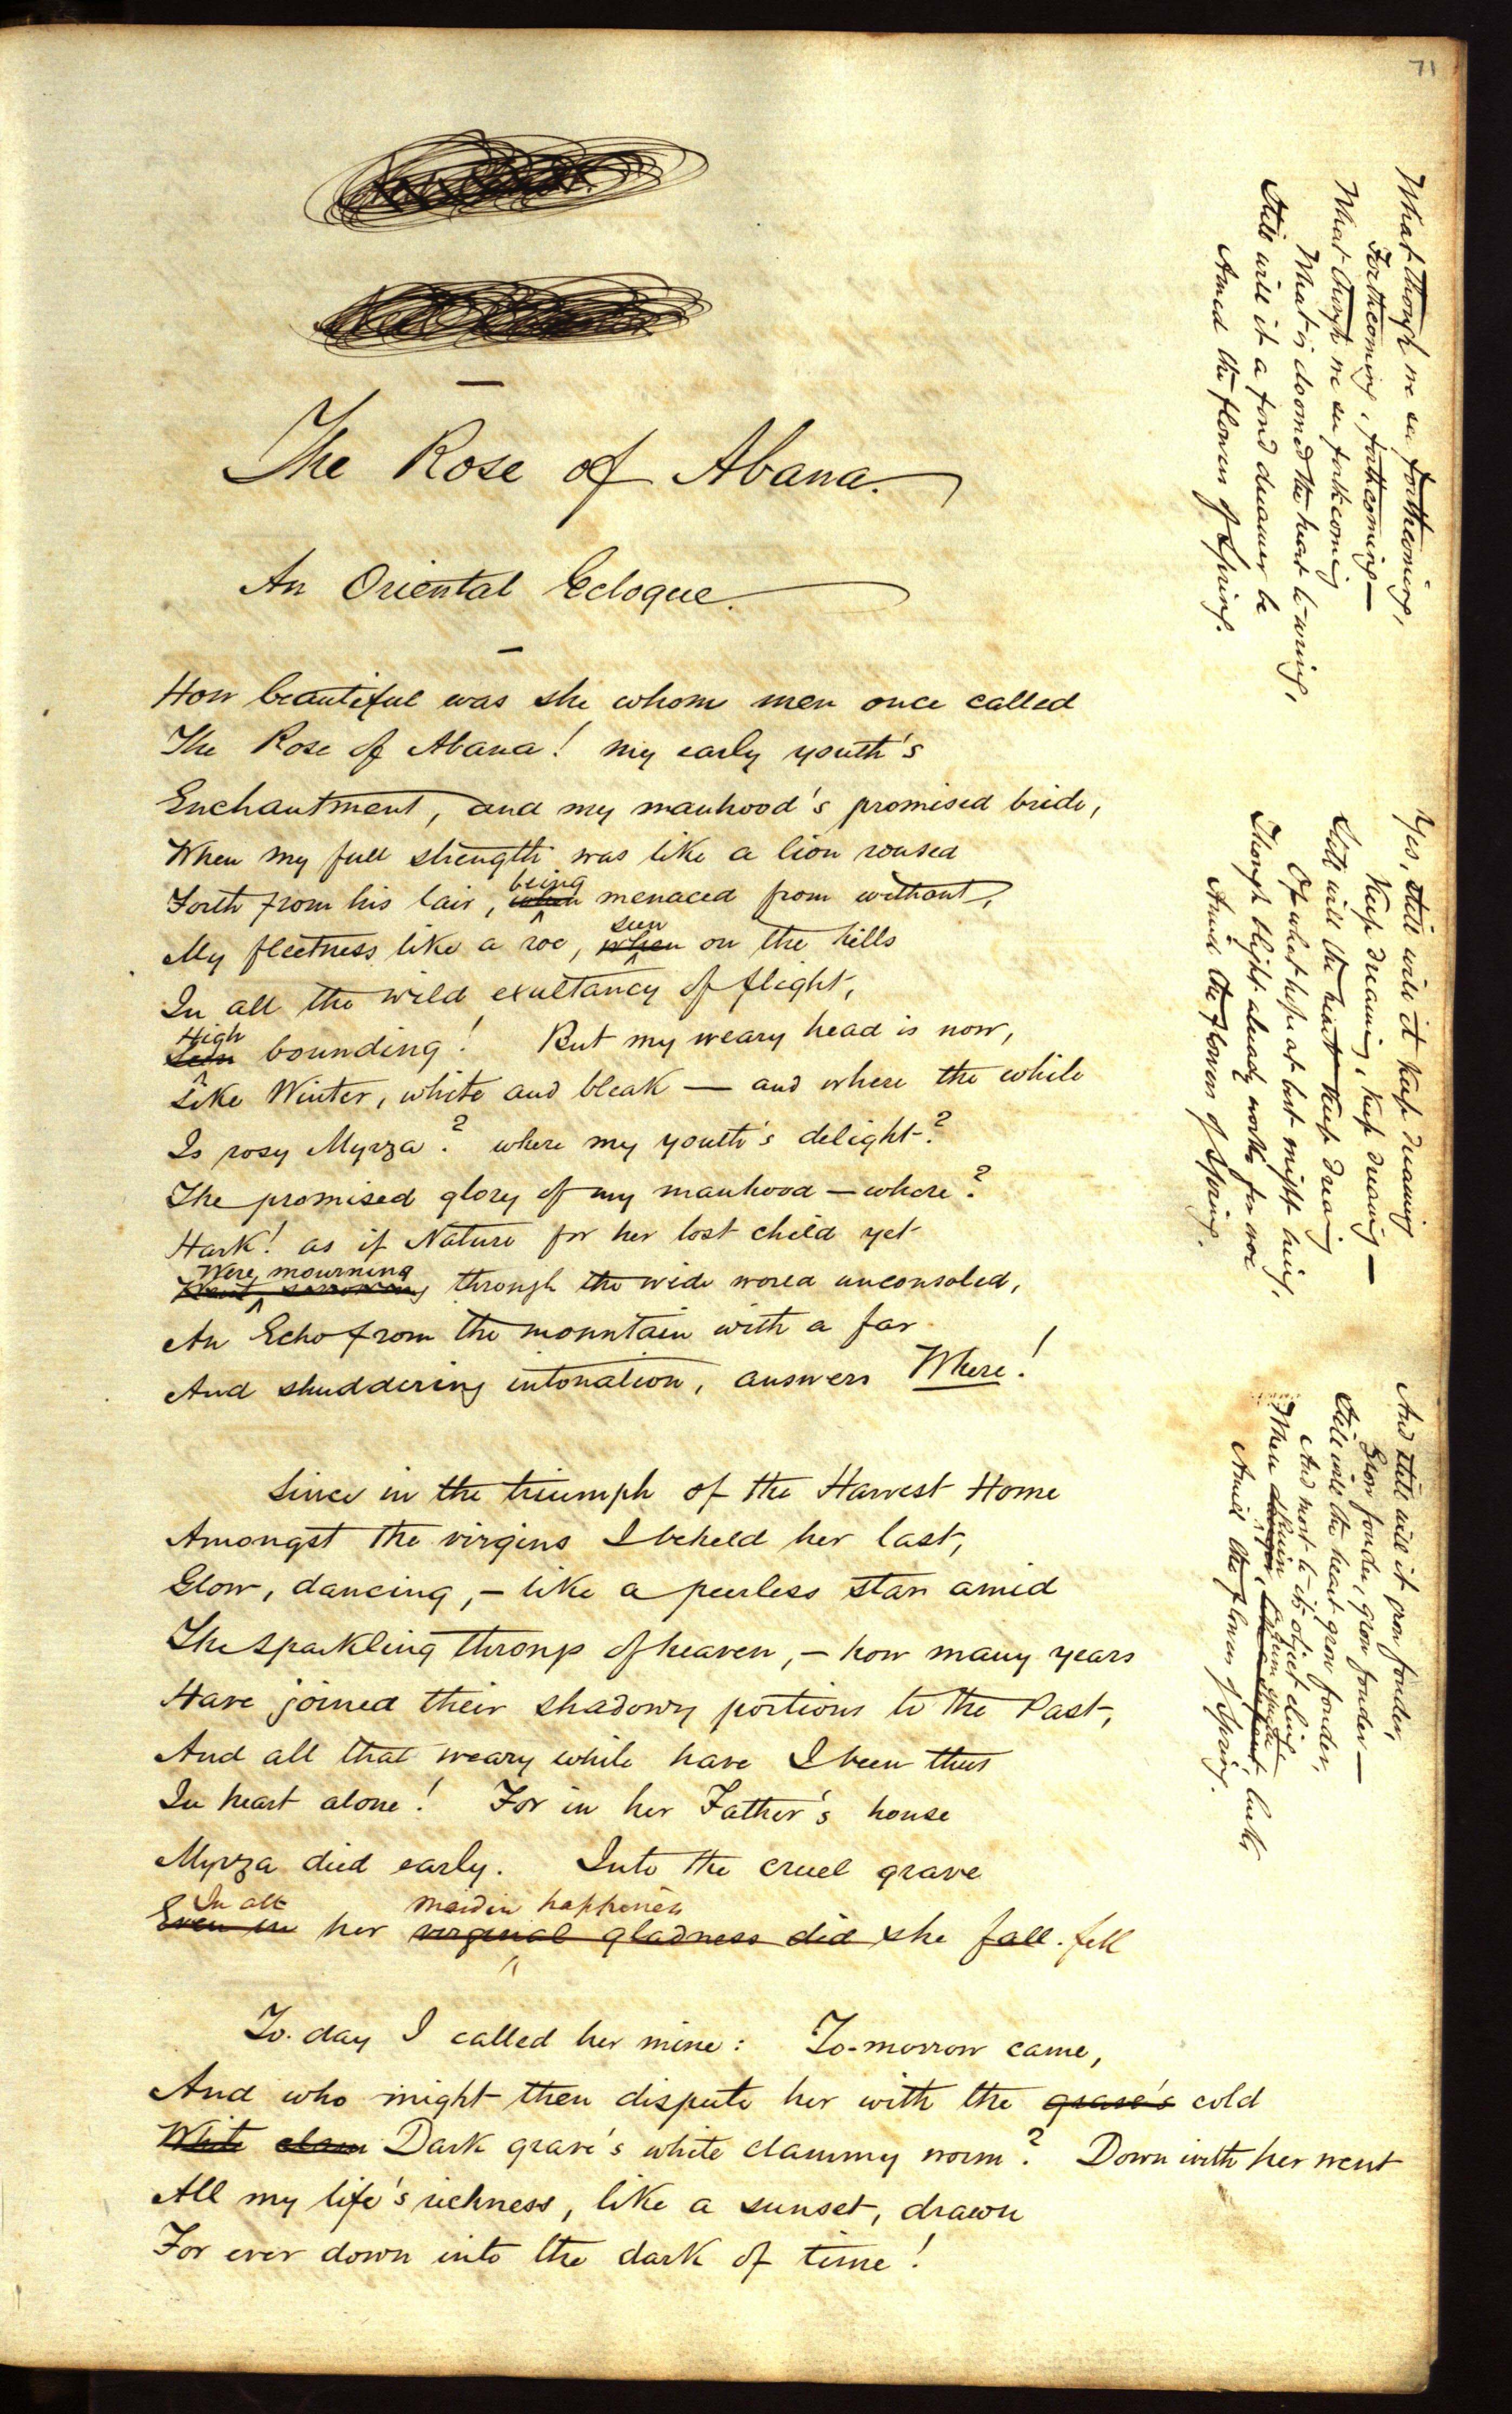 71
The Rose of Abana.
An Oriental Eclogue.
How beautiful was she whom men once called
The Rose of Abana! my early youth's
Enchantment, and my manhood's promised bride,
When my full strength was like a lion roused
being
Forth from his lair, when menaced from without,
seen
My fleetness like a roe, when on the hills
In all the wild exultancy of flight,
High
Seen bounding! But my weary head is now,
Like Winter, white and bleak — and where the while
Is rosy Myrza? where my youth's delight?
The promised glory of my manhood — where?
Hark! as if Nature for her lost child yet
Were mourning
Went sorrowing through the wide world unconsoled,
An Echo from the mountain with a far
And shuddering intonation, answers Where!
Since in the triumph of the Harvest Home
Amongst the virgins I beheld her last,
Glow, dancing, – like a peerless star amid
The sparkling throngs of heaven, – how many years
Have joined their shadowy portions to the Past,
And all that weary while have I been thus
In heart alone! For in her Father's house
Myrza died early. Into the cruel grave
In all maiden happiness
Even in her virginal gladness did she fall. fell
To-day I called her mine: To-morrow came,
And who might then dispute her with the grave's cold
White clam Dark grave's white clammy worm? Down with her went
All my life's richness, like a sunset, drawn
For ever down into the dark of time!
What though we see forthcoming,
Forthcoming, forthcoming —
What though we see forthcoming
What is doomed the heart to wring,
Still will it a fond dreamer be
Amid the flowers of Spring.
Yes, still will it keep dreaming
Keep dreaming, keep dreaming —
Still will the heart keep dreaming
Of what hope at best might bring,
Though blight already works for woe
Amid the flowers of Spring.
And still will it grow fonder,
Grow fonder, grow fonder —
Still will the heart grow fonder,
And most to its object cling
When Ruin lurks
Amid the flowers of Spring.